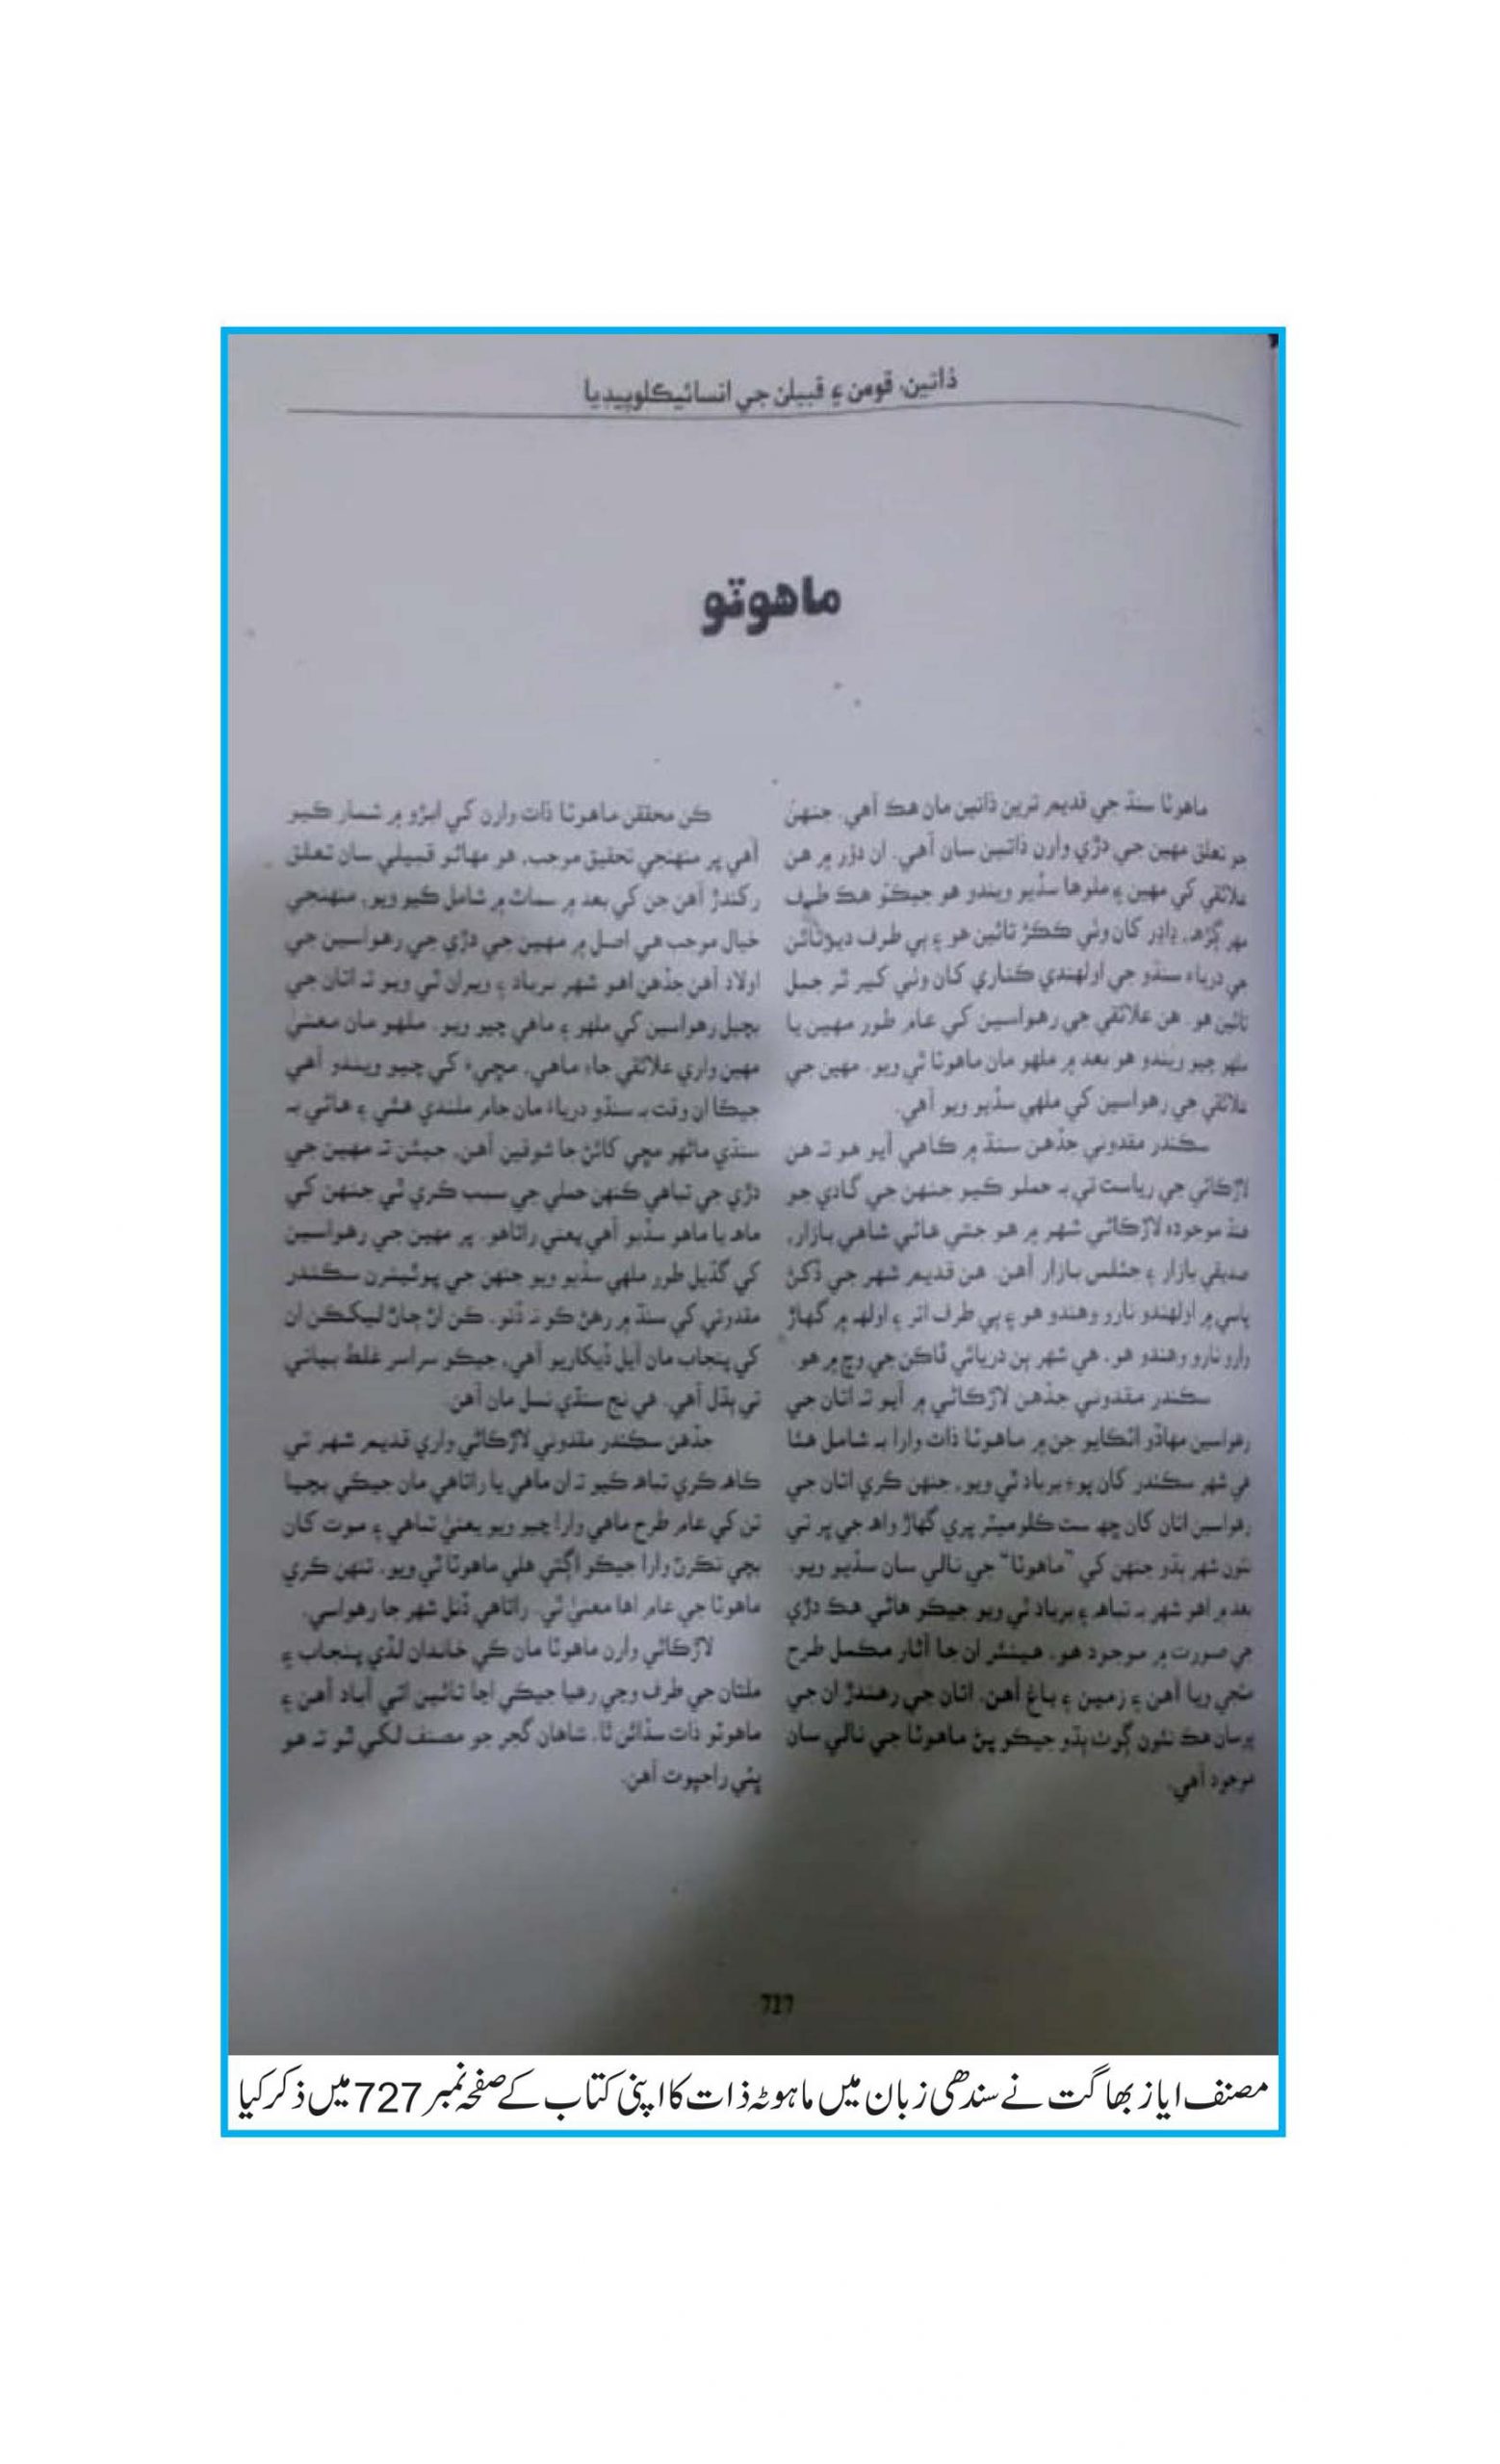 ذاتين، قومن ۽ قبيلن جي انسائيڪلوپيڊيا
ماهوٽو
ماهوٽا سنڌ جي قديم ترين ذاتين مان هڪ آهي. جنهن
جو تعلق مهين جي دڙي وارن ذاتين سان آهي. ان دؤر ۾ هن
علائقي کي مهين ۽ ملوها سڏيو ويندو هو جيڪو هڪ طرف
مهر ڳڙهه، ڍاڍر کان وٺي ڪڪڙ تائين هو ۽ ٻي طرف
جي درياءَ سنڌو جي اولهندي ڪناري کان وٺي کير ٿر جبل
تائين هو. هن علائقي جي رهواسين کي عام طور مهين يا
ملهر چيو ويندو هو بعد ۾ ملهر مان ماهوٽا ٿي ويو. مهين جي
علائقي جي رهواسين کي ملهي سڏيو ويو آهي.
سڪندر مقدوني جڏهن سنڌ ۾ ڪاهي آيو هو تہ هن
لاڙڪاڻي جي رياست تي بہ حملو ڪيو جنهن جي گادي جو
هنڌ موجوده لاڙڪاڻي شهر ۾ هو جتي هاڻي شاهي بازار،
صديقي بازار ۽ جئلس بازار آهن. هن قديم شهر جي ڏکڻ
پاسي ۾ اولهندو نارو وهندو هو ۽ ٻي طرف اتر ۽ اولهہ ۾ گهاڙ
وارو نارو وهندو هو. هي شهر ٻن دريائي ڦاٽن جي وچ ۾ هو.
سڪندر مقدوني جڏهن لاڙڪاڻي ۾ آيو تہ اتان جي
رهواسين مهاڏو اٽڪايو جن ۾ ماهوٽا ذات وارا بہ شامل هئا
هي شهر سڪندر کان پوءِ برباد ٿي ويو. جنهن ڪري اتان جي
رهواسين اتان کان ڇهہ ست ڪلوميٽر پري گهاڙ واهہ جي ڀر تي
نئون شهر ٻڌو جنهن کي "ماهوٽا" جي نالي سان سڏيو ويو.
بعد ۾ اهو شهر بہ تباهہ ۽ برباد ٿي ويو جيڪو هاڻي هڪ دڙي
جي صورت ۾ موجود هو. هينئر ان جا آثار مڪمل طرح
مٽجي ويا آهن ۽ زمين ۽ باغ آهن. اتان جي رهندڙ ان جي
ڀرسان هڪ نئون ڳوٺ ٻڌو جيڪو پڻ ماهوٽا جي نالي سان
موجود آهي.
ڪن محققن ماهوٽا ذات وارن کي ابڙو ۾ شمار ڪيو
آهي پر منهنجي تحقيق موجب، هو مهاڻو قبيلي سان تعلق
رکندڙ آهن جن کي بعد ۾ سماٽ ۾ شامل ڪيو ويو. منهنجي
خيال موجب هي اصل ۾ مهين جي دڙي جي رهواسين جي
اولاد آهن جڏهن اهو شهر برباد ۽ ويران ٿي ويو تہ اتان جي
بچيل رهواسين کي ملهر ۽ ماهي چيو ويو. ملهو مان معنيٰ
مهين واري علائقي جا، ماهي، مڇيءَ کي چيو ويندو آهي
جيڪا ان وقت بہ سنڌو درياءَ مان جام ملندي هئي ۽ هاڻي بہ
سنڌي ماڻهو مڇي کائڻ جا شوقين آهن. جيئن تہ مهين جي
دڙي جي تباهي ڪنهن حملي جي سبب ڪري ٿي جنهن کي
ماهہ يا ماهو سڏبو آهي يعني راتاهو. پر مهين جي رهواسين
کي گڏيل طور ملهي سڏيو ويو جنهن جي پوئينرن سڪندر
مقدوني کي سنڌ ۾ رهڻ ڪو نہ ڏنو. ڪن اڻ ڄاڻ ليکڪن ان
کي پنجاب مان آيل ڏيکاريو آهي، جيڪو سراسر غلط بياني
تي ٻڌل آهي. هي نج سنڌي نسل مان آهن.
جڏهن سڪندر مقدوني لاڙڪاڻي واري قديم شهر تي
ڪاهہ ڪري تباهہ ڪيو تہ ان ماهي يا راتاهي مان جيڪي بچيا
تن کي عام طرح ماهي وارا چيو ويو يعنيٰ تباهي ۽ موت کان
بچي نڪرڻ وارا جيڪو اڳتي هلي ماهوٽا ٿي ويو. تنهن ڪري
ماهوٽا جي عام اها معنيٰ ٿي. راتاهي ڏنل شهر جا رهواسي.
لاڙڪاڻي وارن ماهوٽا مان ڪي خاندان لڏي پنجاب ۽
ملتان جي طرف وڃي رهيا جيڪي اڃا تائين اتي آباد آهن ۽
ماهوٽو ذات سڏائن ٿا. شاهان گجر جو مصنف لکي ٿو تہ هو
ڀٽي راجپوت آهن.
727
مصنف ایاز بھاگت نے سندھی زبان میں ماہوٹہ ذات کا اپنی کتاب کے صفحہ نمبر 727 میں ذکر کیا